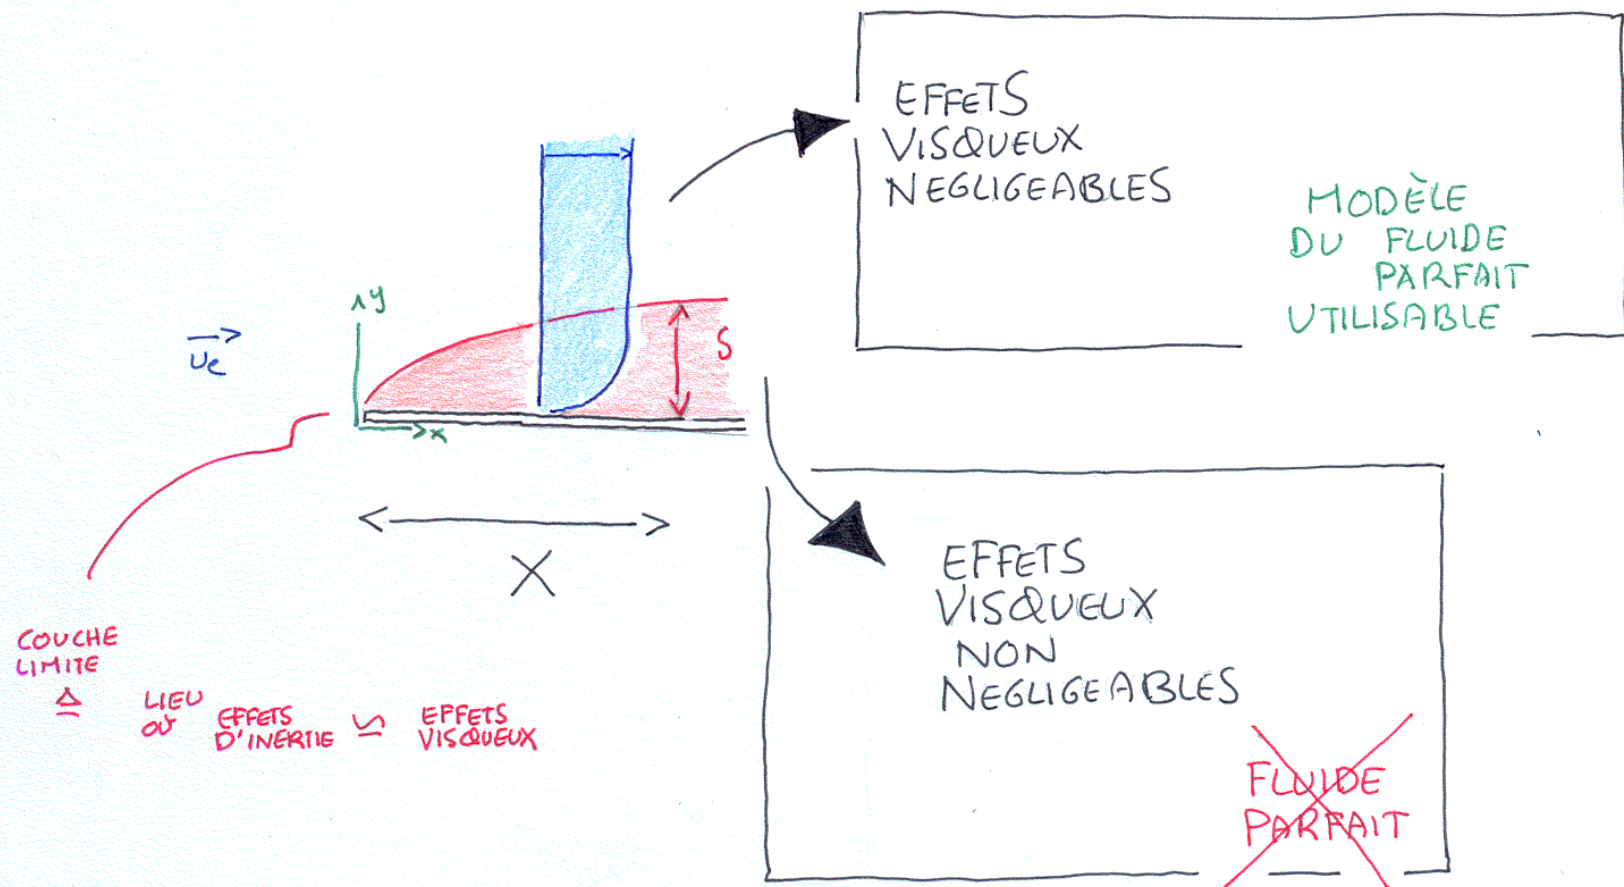 EFFETS
VISQUEUX
NEGLIGEABLES
MODÈLE
DU FLUIDE
PARFAIT
UTILISABLE
y
Ue
δ
x
X
COUCHE
LIMITE
≙
LIEU
OÙ
EFFETS
D'INERTIE
≃
EFFETS
VISQUEUX
EFFETS
VISQUEUX
NON
NEGLIGEABLES
FLUIDE
PARFAIT